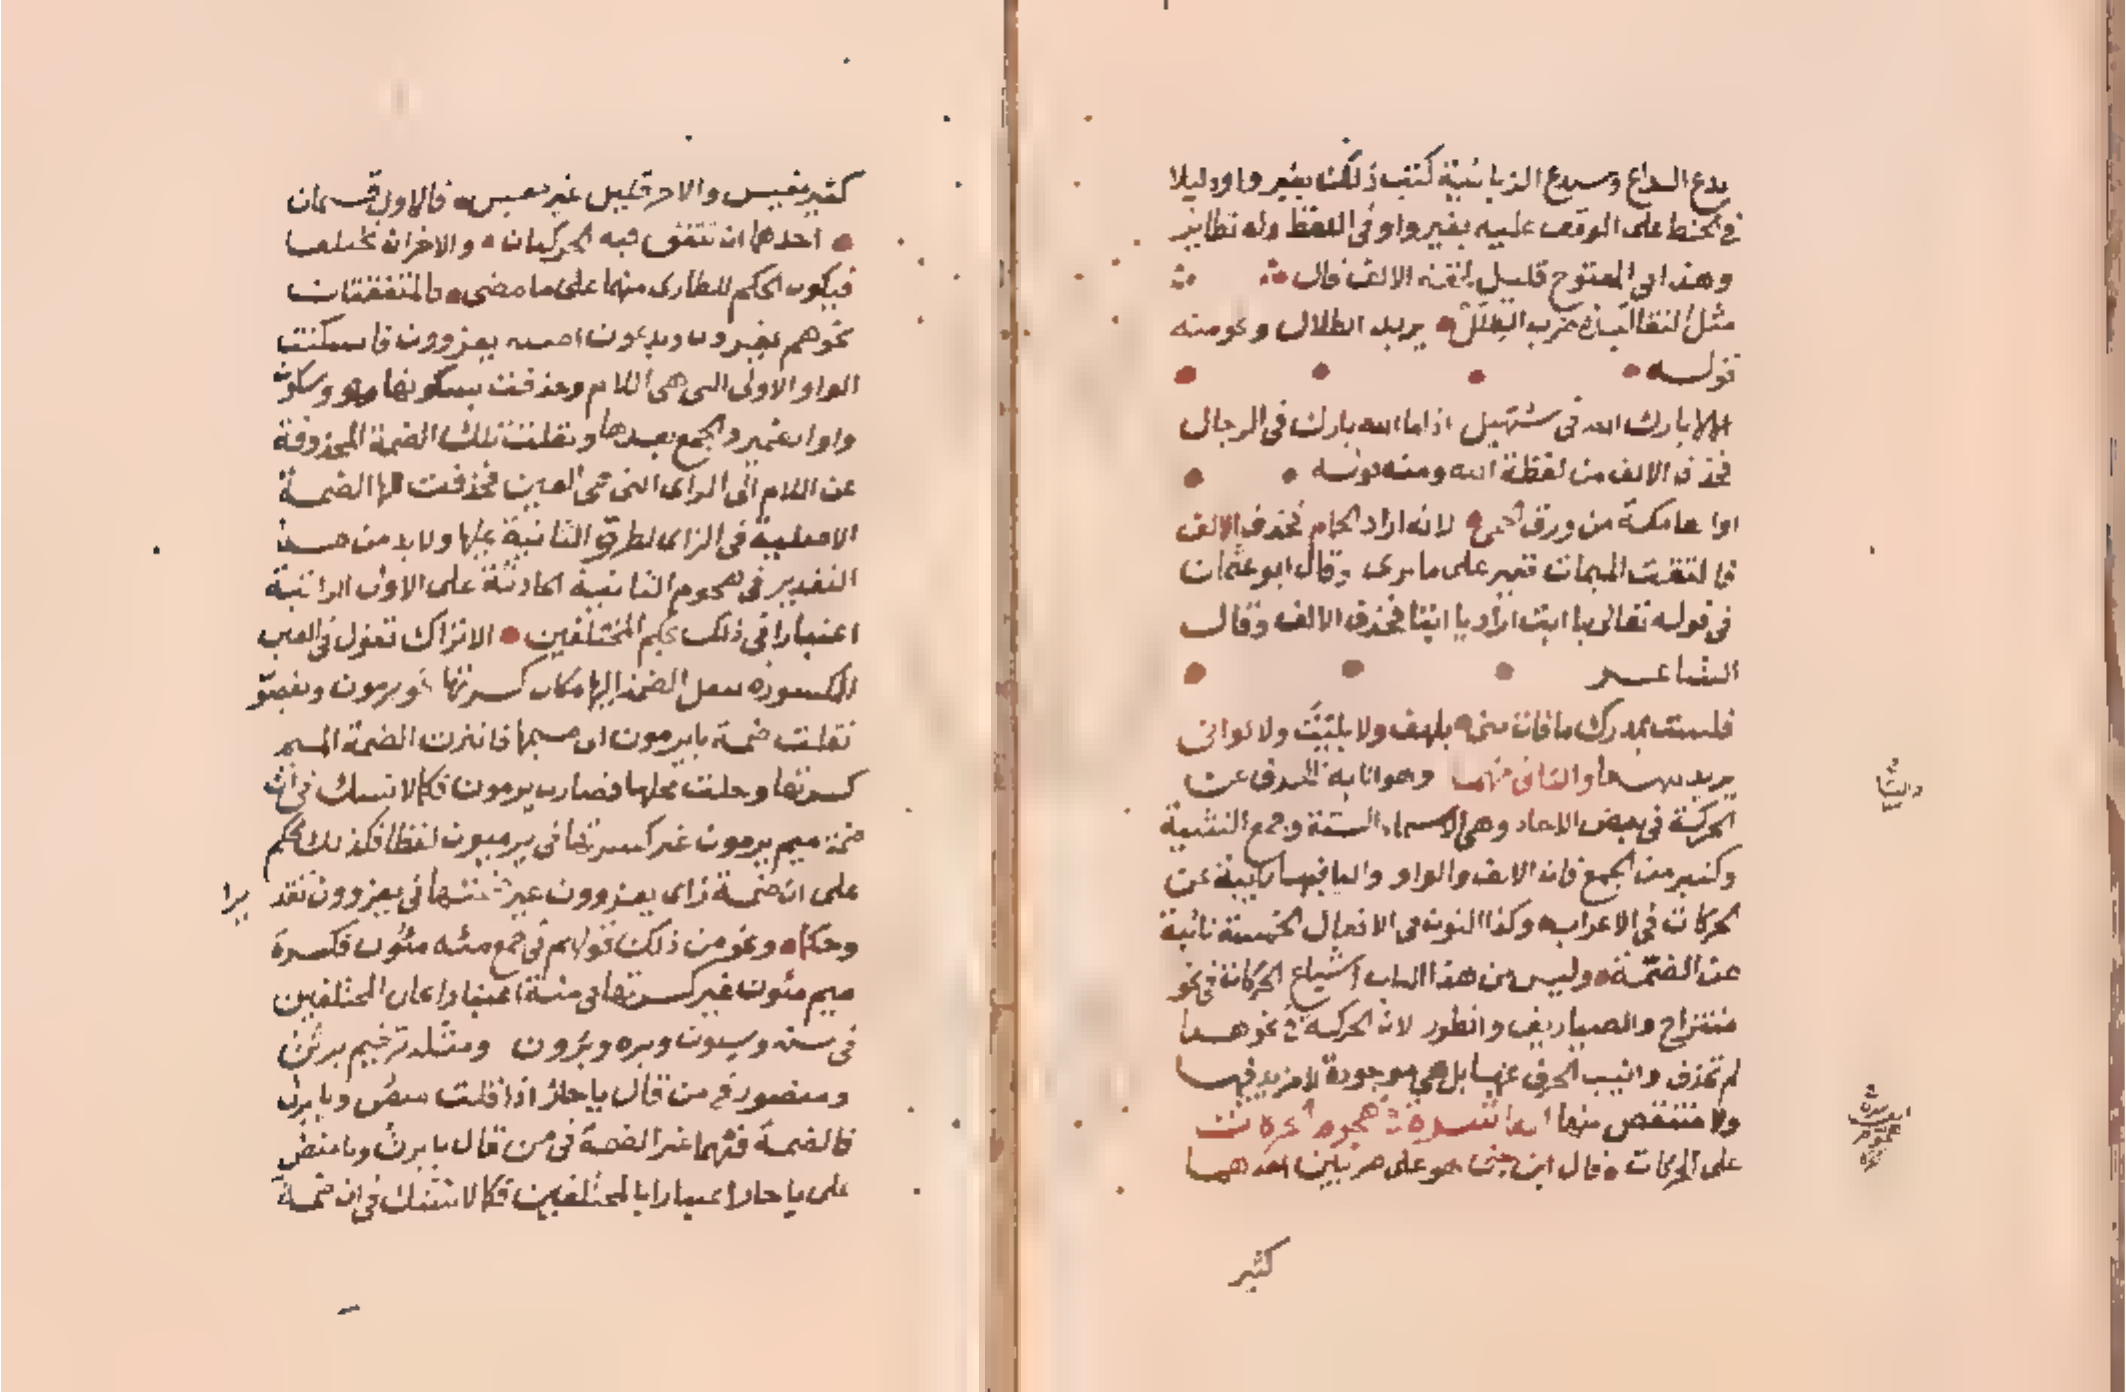 يدع الداع وسندع الزبانية كتب ذلك بغير واو دليلا
في الخط على الوقف عليه بغير واو في اللفظ وله نظاير
وهذا في المفتوح قليل لخفة الالف قال
مثل النقا لبده ضرب الطلل يريد الطلال ونحو منه
قوله
الا لا بارك الله في سهيل اذا ما الله بارك في الرجال
فحذف الالف من لفظة الله ومنه قوله
اوالفا مكة من ورق الحمي لانه اراد الحمام فحذف الالف
فالتقت الميمان فغير على ما ترى وقال ابو عثمان
في قوله تعالى يا ابت اراد يا ابتا فحذف الالف وقال
الشاعر
فلست بمدرك ما فات مني بلهف ولا بليت ولا لواني
يريد بلهفا والثاني منهما وهو انابة الحرف عن
الحركة في بعض الاحاد وهي الاسماء الستة وجمع التثنية
وكثير من الجمع فان الالف والواو واليا فيها نايبة عن
الحركات في الاعراب وكذا النون في الافعال الخمسة نائبة
عن الضمة وليس من هذا الباب اشباع الحركات في نحو
منتزاح والصياريف وانظور لان الحركة في نحو هذا
لم تحذف وانيب الحرف عنها بل هي موجودة لا مزيد فيها
ولا منتقص منها السادسة في هجوم الحركات
على الحركات قال ابن جني هو على ضربين احدهما
كثير
كثير مقيس والاخر قليل غير مقيس فالاول قسمان
احدهما ان تتفق فيه الحركتان والاخر ان تختلفا
فيكون الحكم للطارئ منهما على ما مضى فالمتفقتان
نحو هم يغزون ويدعون اصله يغزوون فاسكنت
الواو الاولى التي هي اللام وحذفت لسكونها وسكون
واو الضمير والجمع بعدها ونقلت تلك الضمة المحذوفة
عن اللام الى الزاى التي هي العين فحذفت لها الضمة
الاصلية في الزاى لطرو الثانية عليها ولا بد من هذا
التقدير في هجوم الثانية الحادثة على الاولى الراتبة
اعتبارا في ذلك بحكم المختلفين الا تراك تقول في العين
المكسورة بنقل الضمة اليها مكان كسرتها نحو يرمون ويقضون
نقلت ضمة ياء يرميون الى ميمها فابتزت الضمة الميم
كسرتها وحلت محلها فصارت يرمون فكما لا تشك في ان
ضمة ميم يرمون غير كسرتها في يرميون لفظا فكذلك نحكم
على ان ضمة زاى يغزون غير ضمتها في يغزوون تقديرا
وحكما ونحو من ذلك قولهم في جمع مئة مئون فكسرة
ميم مئون غير كسرتها في مئة اعتبارا بحال المختلفين
في سنة وسنون وبره وبرون ومثله ترخيم برثن
ومنصور في من قال يا حار اذا قلت يا منص ويا برث
فالضمة فيهما غير الضمة في من قال يا برث ويا منص
على يا حار اعتبارا بالمختلفين فكما لا شك في ان ضمة